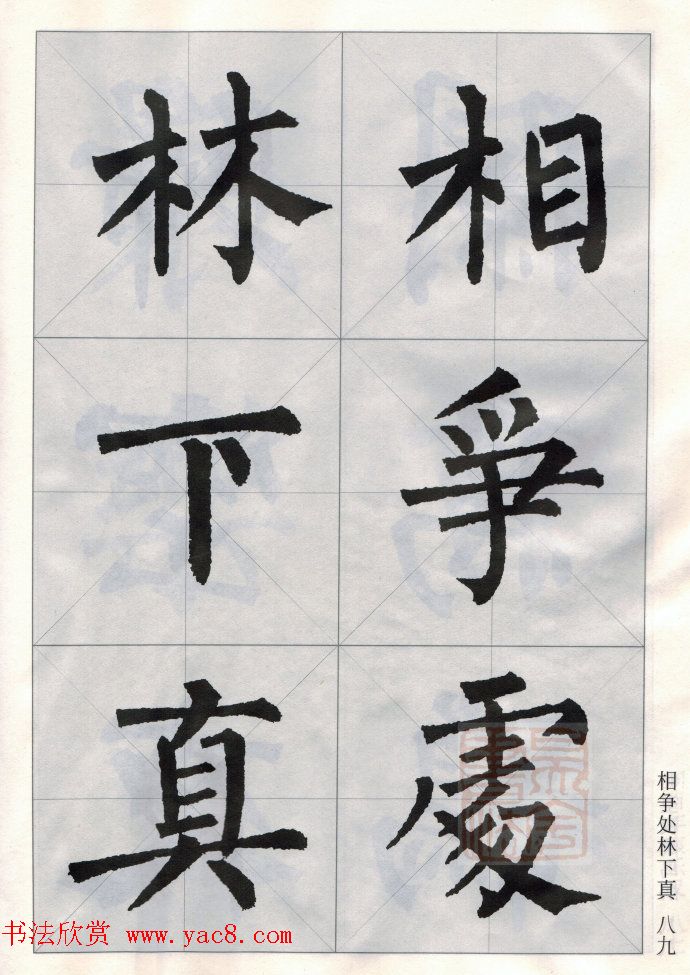 相爭處
林下真
相争处林下真 八九
书法欣赏 www.yac8.com